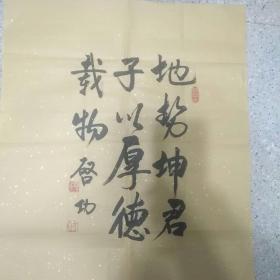 地势坤君
子以厚德
载物启功